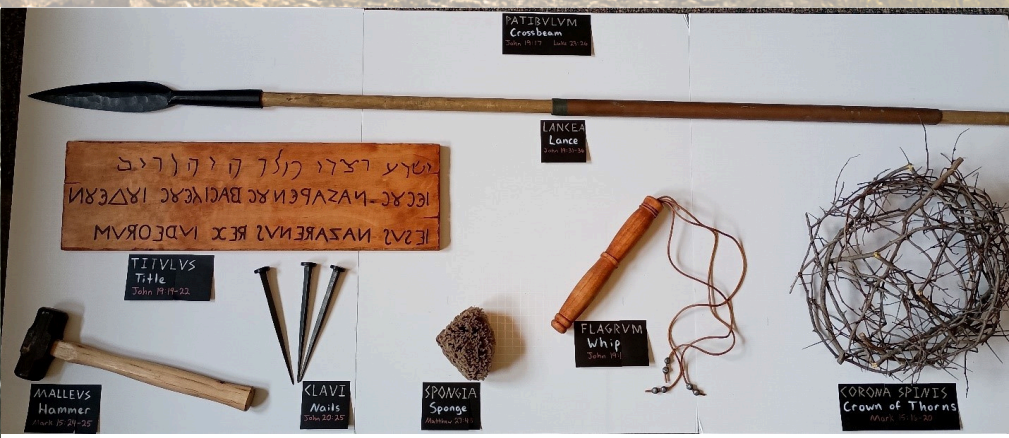 PATIBVLVM
Crossbeam
John 19:17 Luke 23:26
LANCEA
Lance
John
IESVS NAZARENVS REX IVDEORVM
TITVLVS
Title
John 19:19-22
MALLEVS
Hammer
Mark 15:24-25
CLAVI
Nails
John 20:25
SPONGIA
Sponge
Matthew
FLAGRVM
Whip
John 19:1
CORONA SPINIS
Crown of Thorns
Mark 15:16-20